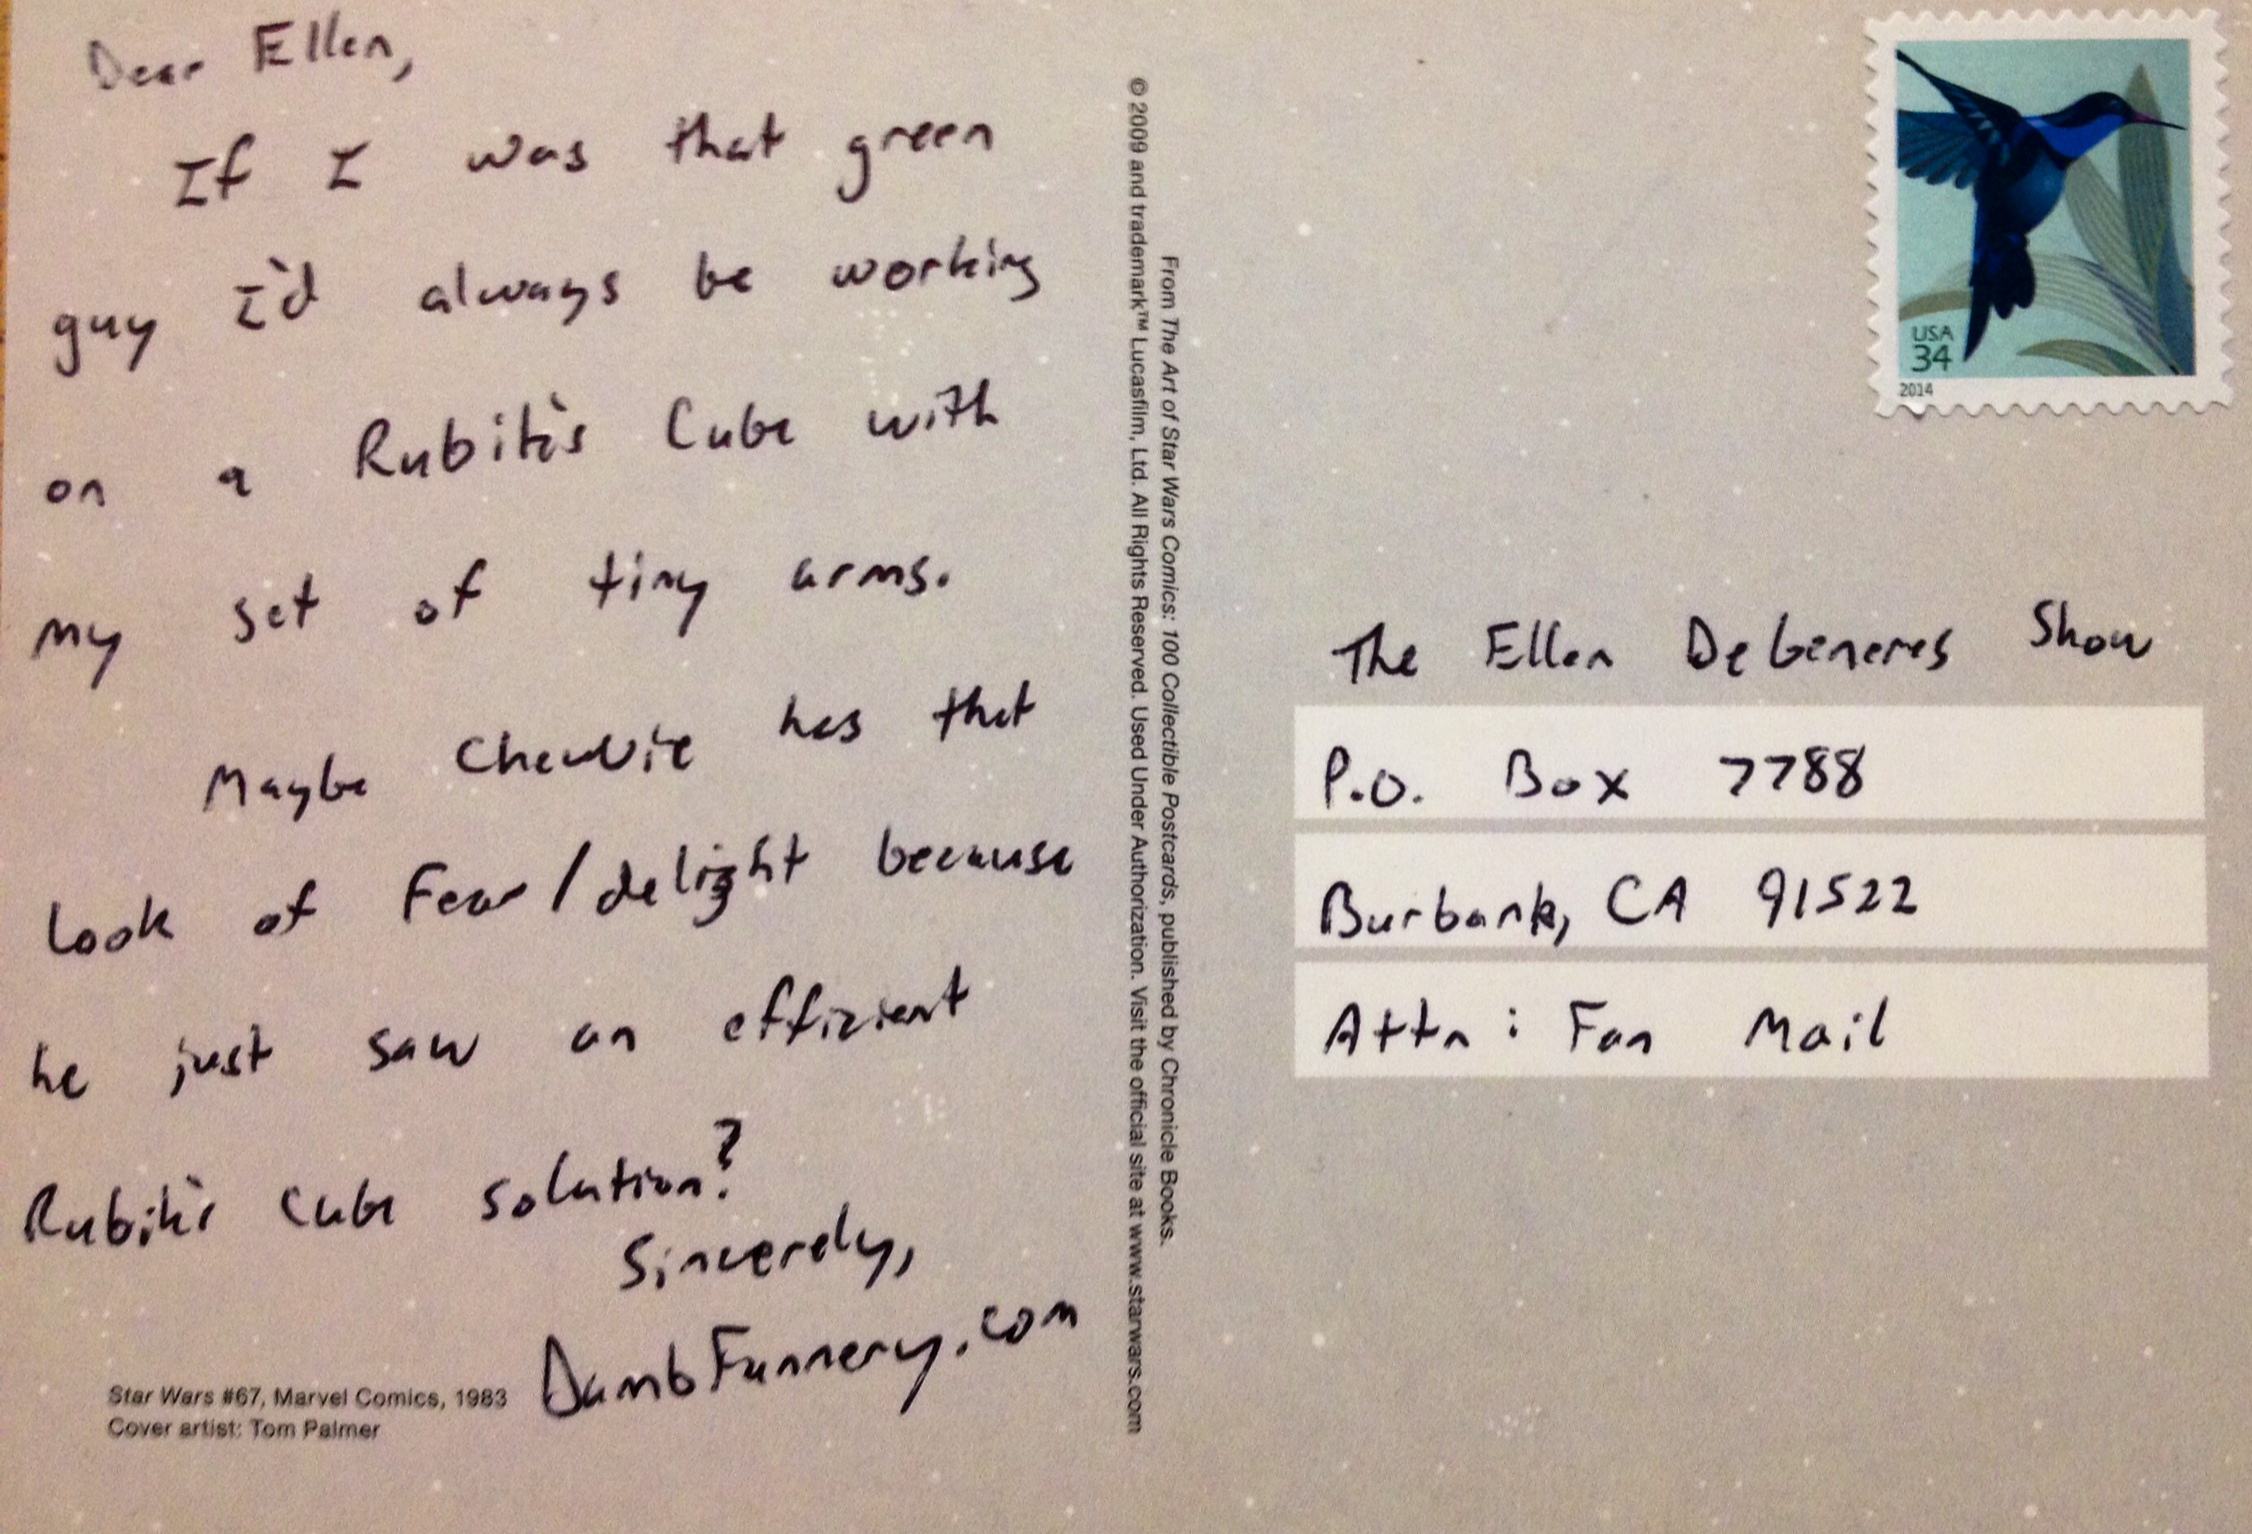 Dear Ellen,
If I was that green
guy I'd always be working
on a Rubik's Cube with
my set of tiny arms.
Maybe Chewie has that
look of fear/delight because
he just saw an efficient
Rubik's Cube solution?
Sincerely,
DumbFunnery.com
Star Wars #67, Marvel Comics, 1983
Cover artist: Tom Palmer
From The Art of Star Wars Comics: 100 Collectible Postcards, published by Chronicle Books.
© 2009 and trademark™ Lucasfilm, Ltd. All Rights Reserved. Used Under Authorization. Visit the official site at www.starwars.com
USA
34
2014
The Ellen DeGeneres Show
P.O. Box 7788
Burbank, CA 91522
Attn: Fan Mail